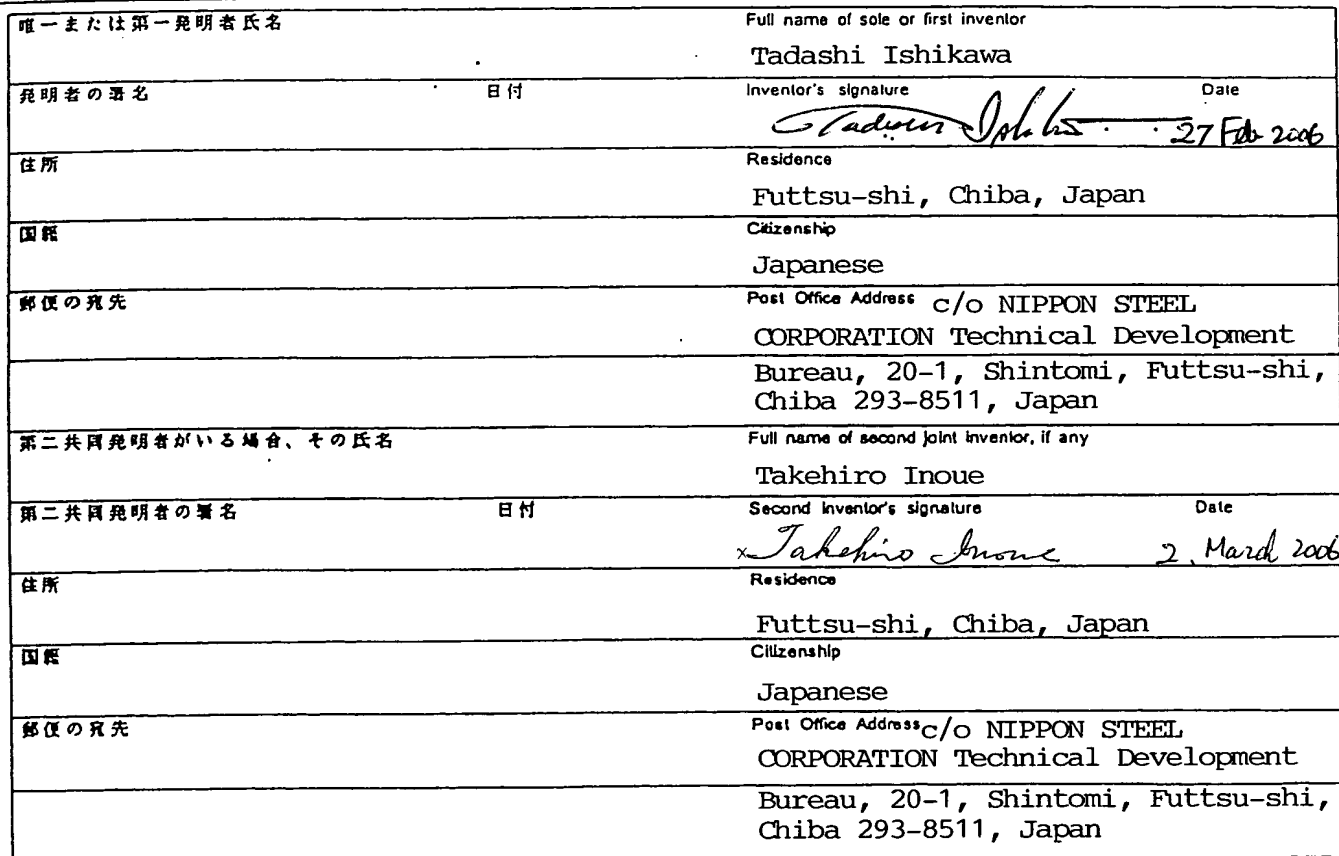 唯一または第一発明者氏名 Full name of sole or first inventor
Tadashi Ishikawa
発明者の署名 日付 Inventor's signature Date
Tadashi Ishikawa 27 Feb 2006
住所 Residence
Futtsu-shi, Chiba, Japan
国籍 Citizenship
Japanese
郵便の宛先 Post Office Address c/o NIPPON STEEL
CORPORATION Technical Development
Bureau, 20-1, Shintomi, Futtsu-shi,
Chiba 293-8511, Japan
第二共同発明者がいる場合、その氏名 Full name of second joint inventor, if any
Takehiro Inoue
第二共同発明者の署名 日付 Second inventor's signature Date
x Takehiro Inoue 2. March 2006
住所 Residence
Futtsu-shi, Chiba, Japan
国籍 Citizenship
Japanese
郵便の宛先 Post Office Address c/o NIPPON STEEL
CORPORATION Technical Development
Bureau, 20-1, Shintomi, Futtsu-shi,
Chiba 293-8511, Japan